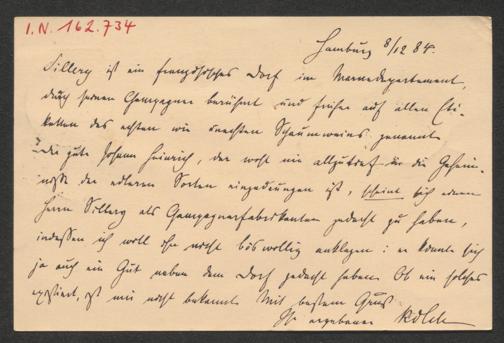 I.N. 162.734
Hamburg 8/12 84.
Sillery ist ein französisches Dorf im Marnedepartement,
durch seinen Champagner berühmt und früher auf allen Eti-
ketten des echten wie unechten Schaumweins genannt
Der gute Johann Heinrich, der wohl nie allzutief in die Geheim-
nisse der edleren Sorten eingedrungen ist, scheint sich einen
Herrn Sillery als Champagnerfabrikanten gedacht zu haben,
indessen ich will ihn nicht böswillig anklagen: er könnte sich
ja auch ein Gut neben dem Dorf gedacht haben. Ob ein solches
existiert, ist mir nicht bekannt. Mit bestem Gruss
Ihr ergebener